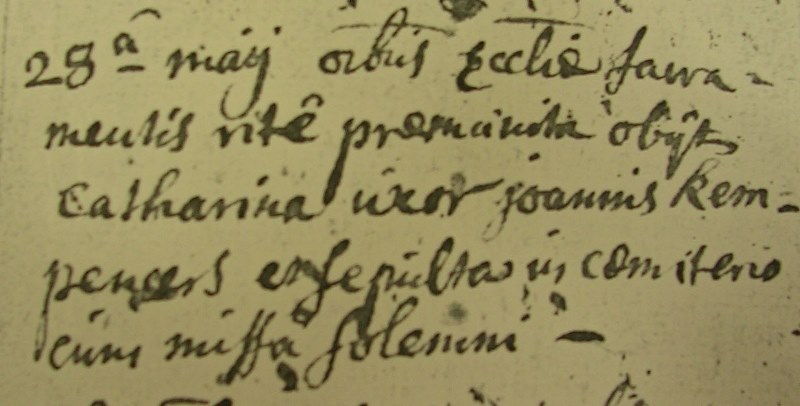 28â maij oibûs Ecclîe sacra-
mentis ritê præmunita obijt
Catharina uxor joannis kem-
peneers et sepulta in cæmiterio
cum missâ solemni -